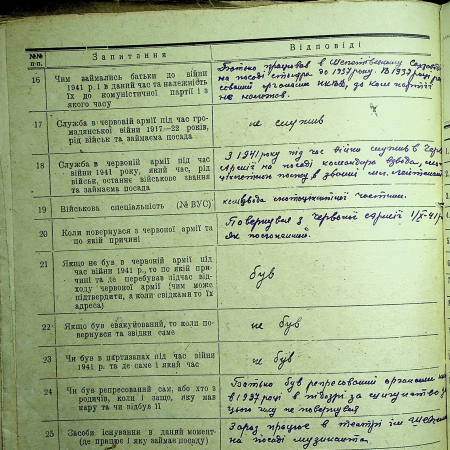 №№ п-п.
Запитання
Відповіді
16
Чим займались батьки до війни
1941 р. і в даний час та належність
їх до комуністичної партії і з
якого часу
Батько працював в Шепетівському
на посаді столяра до 1937 року. В 1937 році
органами НКВД, до ком. партії
не належав.
17
Служба в червоній армії під час гро-
мадянської війни 1917—22 років,
рід військ та займаєма посада
не служив
18
Служба в червоній армії під час
війни 1941 року, який час, рід
військ, останнє військове звання
та займаєма посада
З 1941 року під час війни служив в
армії на посаді командора взвода
полку в званні мл. лейтенант
19
Військова спеціальність (№ ВУС)
частини.
20
Коли повернувся з червоної армії та
по якій причині
Повернувся з Червоної армії
21
Якщо не був в червоній армії під
час війни 1941 р., то по якій при-
чині та де перебував підчас від-
ходу червоної армії (чим може
підтвердити, а коли свідками то їх
адреса)
був
22
Якщо був евакуйований, то коли по-
вернувся та звідки саме
не був
23
Чи був в партизанах під час війни
1941 р. та де саме і який час
не був
24
Чи був репресований сам, або хто з
родичів, коли і защо, яку мав
кару та чи відбув її
Батько був репресований органами
в 1937 році в підозрі за шпигунство
цього часу не повернувся
25
Засоби існування в даний момент
(де працює і яку займає посаду)
Зараз працює в театрі ім.
на посаді музиканта